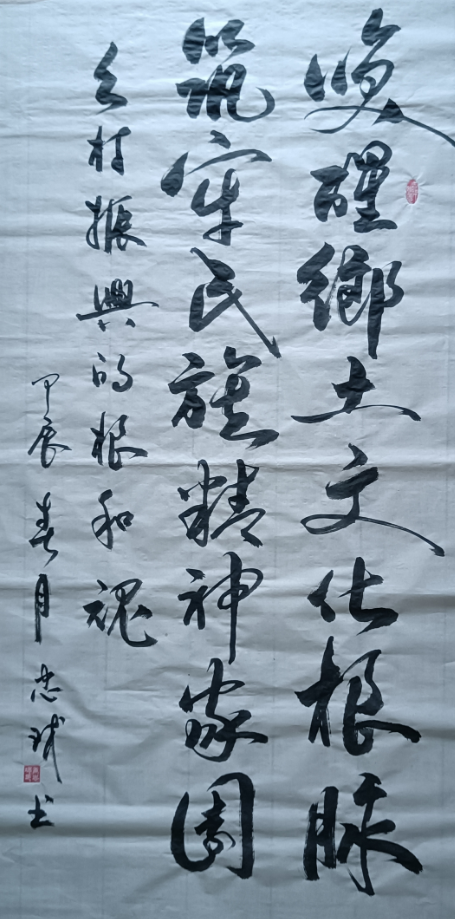 唤醒鄉土文化根脉
筑牢民族精神家園
乡村振興的根和魂
甲辰春月忠球书